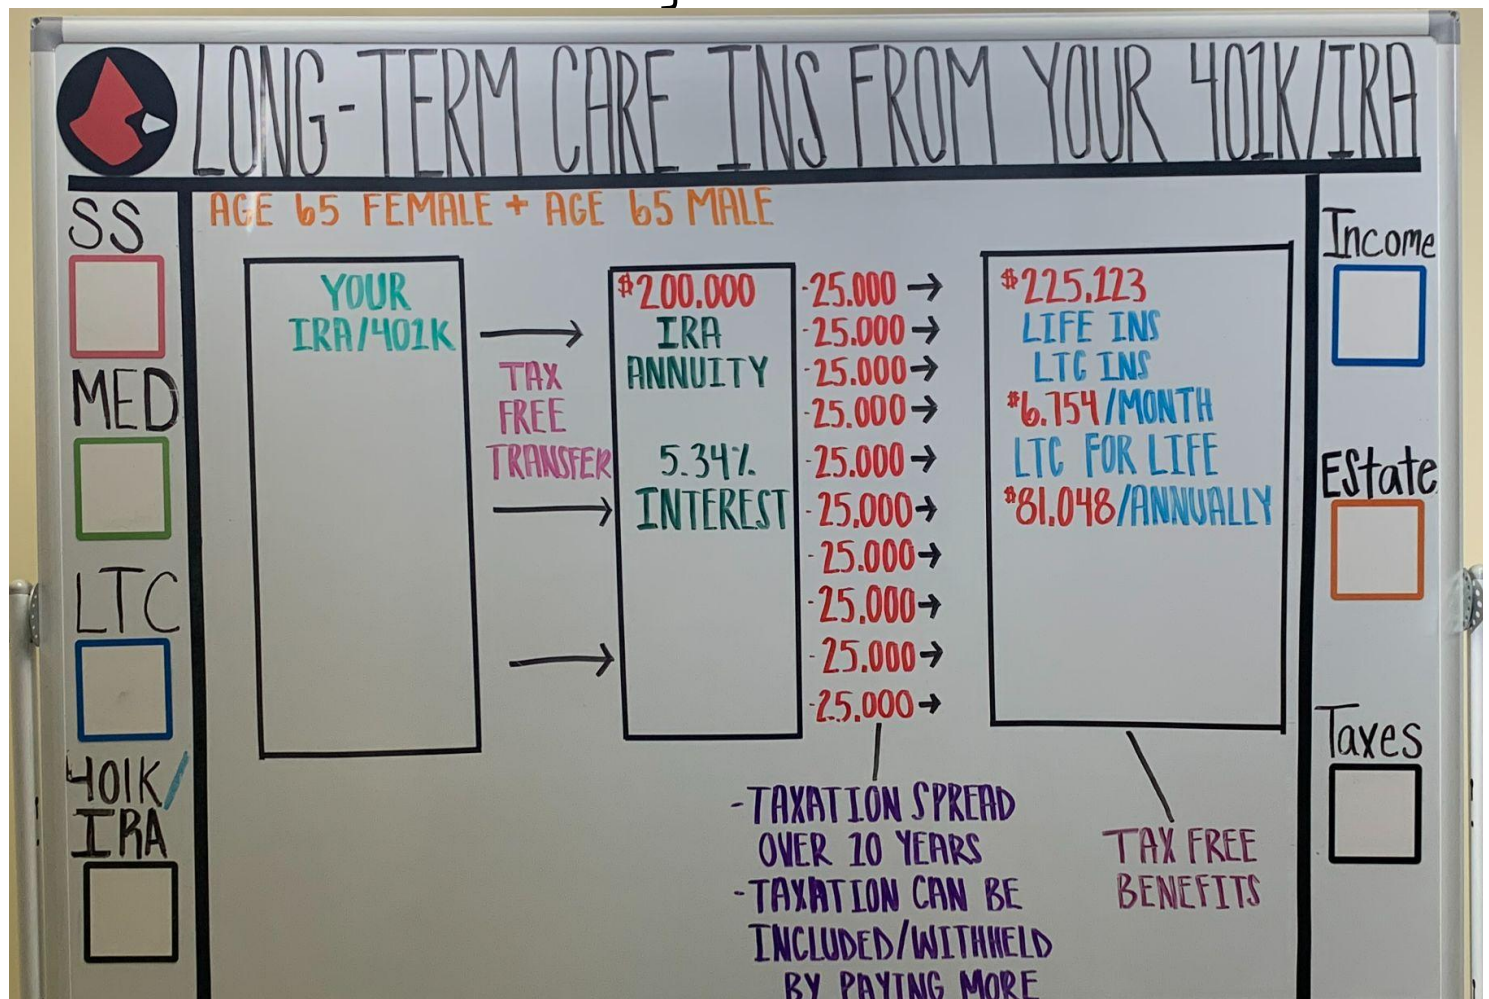 LONG-TERM CARE INS FROM YOUR 401K/IRA
AGE 65 FEMALE + AGE 65 MALE
SS
MED
LTC
401K/
IRA
YOUR
IRA/401K
TAX
FREE
TRANSFER
$200.000
IRA
ANNUITY
5.34%
INTEREST
-25.000 →
-25.000 →
-25.000 →
-25.000 →
-25.000 →
-25.000 →
-25.000 →
-25.000 →
-25.000 →
-25.000 →
$225,123
LIFE INS
LTC INS
$6.754/MONTH
LTC FOR LIFE
$81,048/ANNUALLY
-TAXATION SPREAD
OVER 10 YEARS
-TAXATION CAN BE
INCLUDED/WITHHELD
BY PAYING MORE
TAX FREE
BENEFITS
Income
EState
Taxes